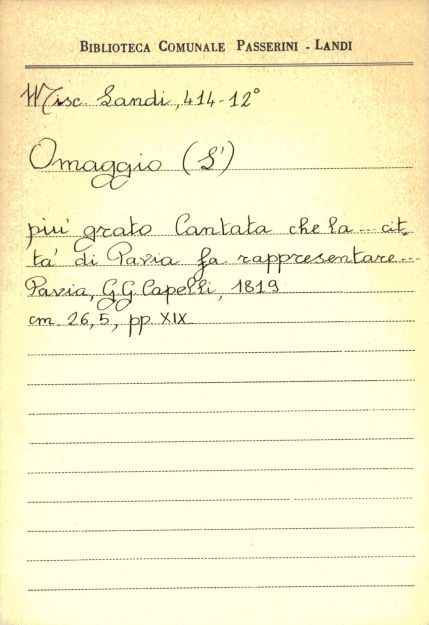 BIBLIOTECA COMUNALE PASSERINI - LANDI
Misc. Landi, 414-12°
Omaggio (L')
piu' grato Cantata che la ... cit-
ta' di Pavia fa rappresentare...
Pavia, G.G. Capelli, 1819
cm. 26,5, pp. XIX